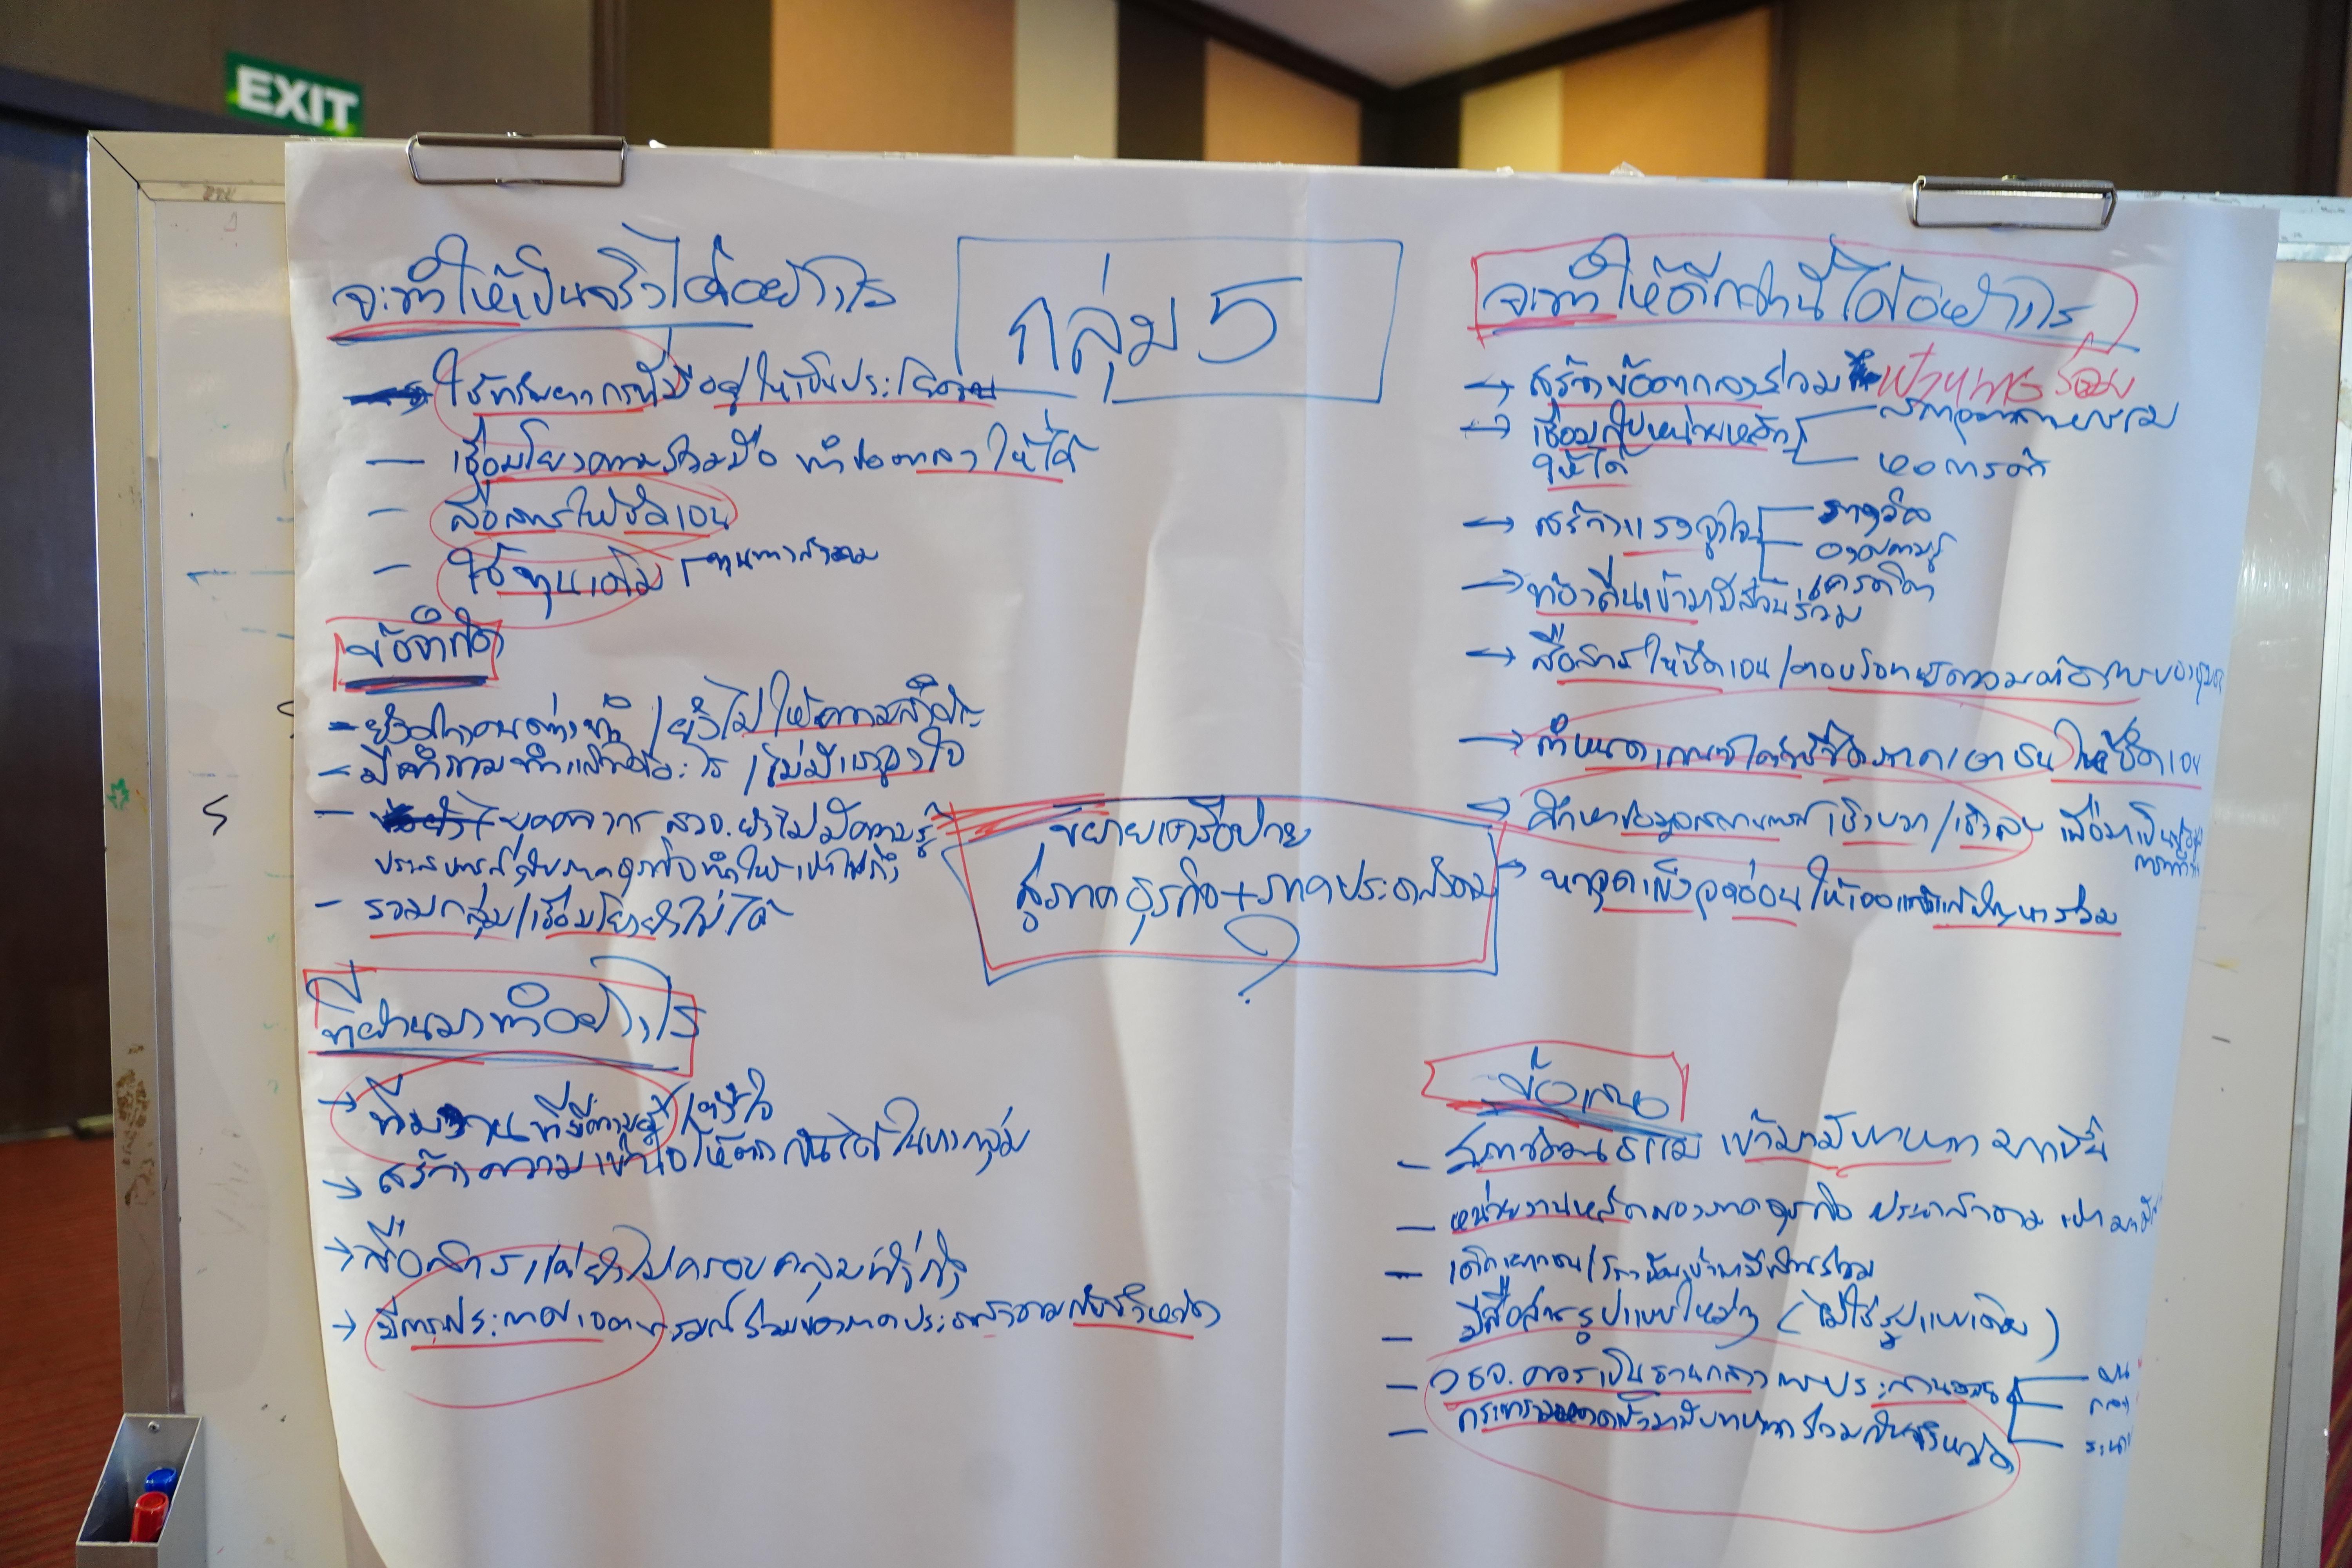 EXIT
กลุ่ม 5
จะทำให้เป็นจริงได้อย่างไร
ใช้ทรัพยากรที่มีอยู่ให้เป็นประโยชน์
- เชื่อมโยงความร่วมมือ ทำข้อตกลงให้ได้
- สื่อสารให้ชัดเจน
- ใช้ทุนเดิม ทุนทางสังคม
ข้อจำกัด
- ต่างคนต่างทำ / ยังไม่ให้ความสำคัญ
- มีคำถามทำแล้วได้อะไร / ไม่มีแรงจูงใจ
- บุคลากร สวจ. ยังไม่มีความรู้
ประสบการณ์กับภาคธุรกิจทำให้เข้าไม่ถึง
- รวมกลุ่ม/เชื่อมโยงยังไม่ได้
ที่ผ่านมาทำอย่างไร
→ ทีมงานที่มีความรู้/เข้าใจ
→ สร้างความเข้าใจให้ตรงกันได้ในบางกลุ่ม
→ สื่อสารแต่ยังไม่ครอบคลุมทั่วถึง
→ มีการประกาศเจตนารมณ์ร่วมของภาคประชาสังคมกับจังหวัด
ขยายเครือข่าย
สู่ภาคธุรกิจ+ภาคประชาสังคม
?
จะทำให้ดีกว่านี้ได้อย่างไร
→ สร้างข้อตกลงร่วม
→ เชื่อมกับหน่วยหลัก สภาอุตสาหกรรม
ให้ได้ หอการค้า
→ สร้างแรงจูงใจ รางวัล
องค์ความรู้
เครดิต
→ ท้องถิ่นเข้ามามีส่วนร่วม
→ สื่อสารให้ชัดเจน/ตอบโจทย์ความต้องการของชุมชน
→ กำหนดเกณฑ์ตัวชี้วัดภาคเอกชนให้ชัดเจน
→ ศึกษาข้อมูลสถานการณ์เชิงบวก/เชิงลบ เพื่อมาเป็น
→ หาจุดแข็งจุดอ่อนให้เจอ แก้ปัญหาร่วม
ข้อเสนอ
- สภาวัฒนธรรม เข้ามามีบทบาท มากขึ้น
- หน่วยงานหลักของภาคธุรกิจ ประชาสังคม เข้ามามี
- เด็กเยาวชน/ เข้ามามีส่วนร่วม
- มีสื่อสารรูปแบบใหม่ๆ (ไม่ใช่รูปแบบเดิม)
- วธจ. ควรเป็นฐานกลางการประสานงาน
- เข้ามามีบทบาทร่วมกับจังหวัด